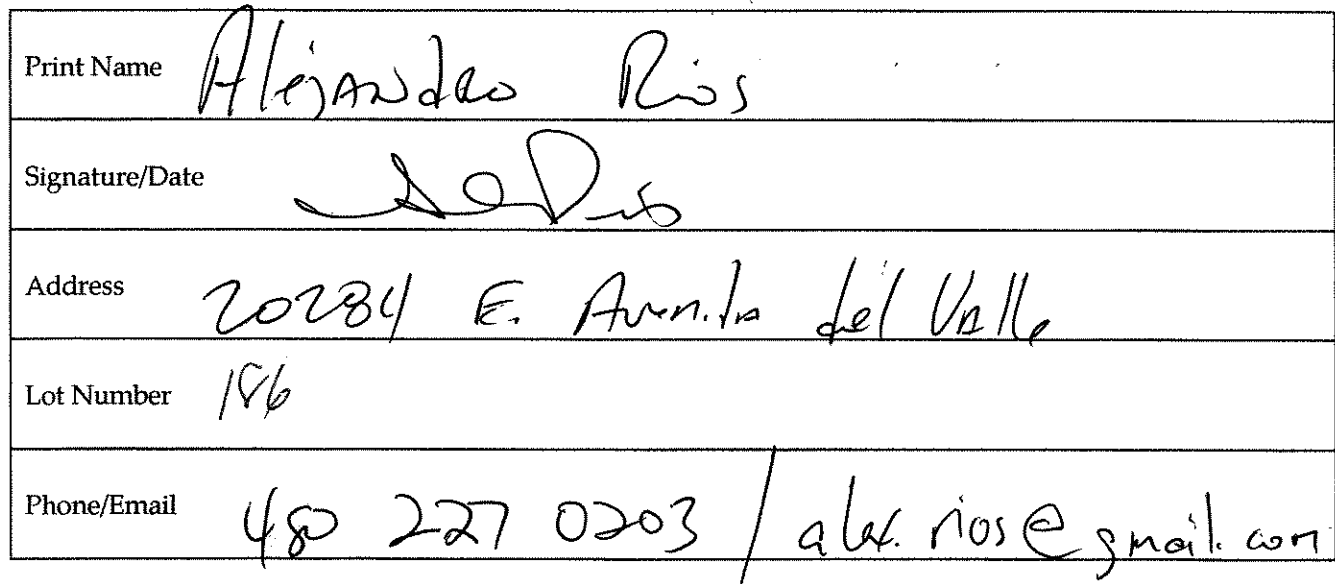 Print Name Alejandro Rios
Signature/Date
Address 20284 E. Avenida del Valle
Lot Number 186
Phone/Email 480 227 0203 / alex.rios@gmail.com